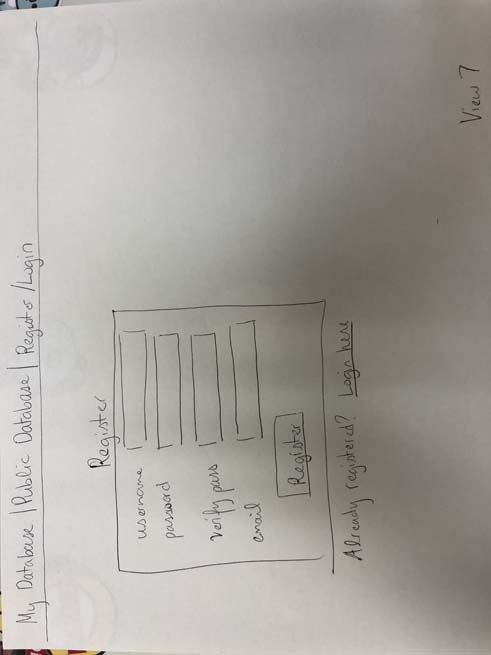 My Database | Public Database | Register/Login
Register
username
password
verify pass
email
Register
Already registered? Login here
View 7